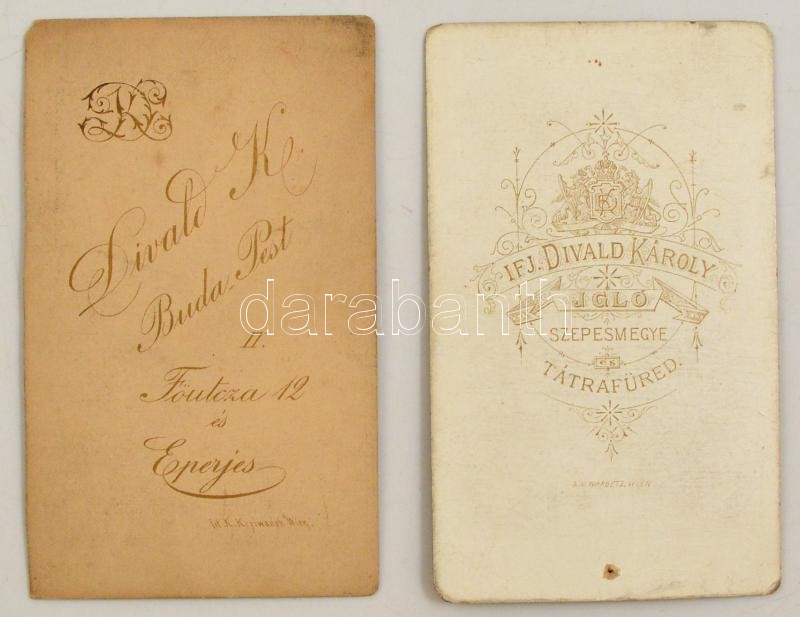 DK
Divald K.
Buda-Pest
II.
Főutcza 12
és
Eperjes
Lit. K. Krziwanek Wien.
DK
IFJ. DIVALD KÁROLY
IGLÓ
SZEPESMEGYE
és
TÁTRAFÜRED.
WIEN
darabanth